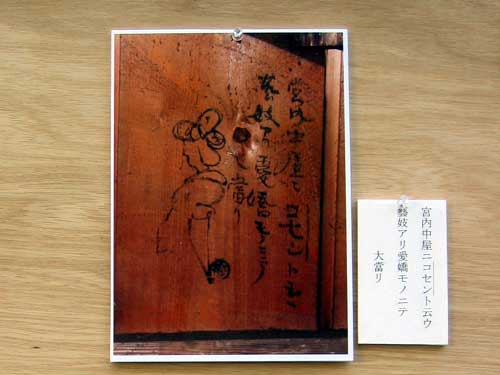 宮内中屋ニコセント云ウ
藝妓アリ愛嬌モノニテ
大當リ
宮内中屋ニコセント云ウ
藝妓アリ愛嬌モノニテ
大當リ